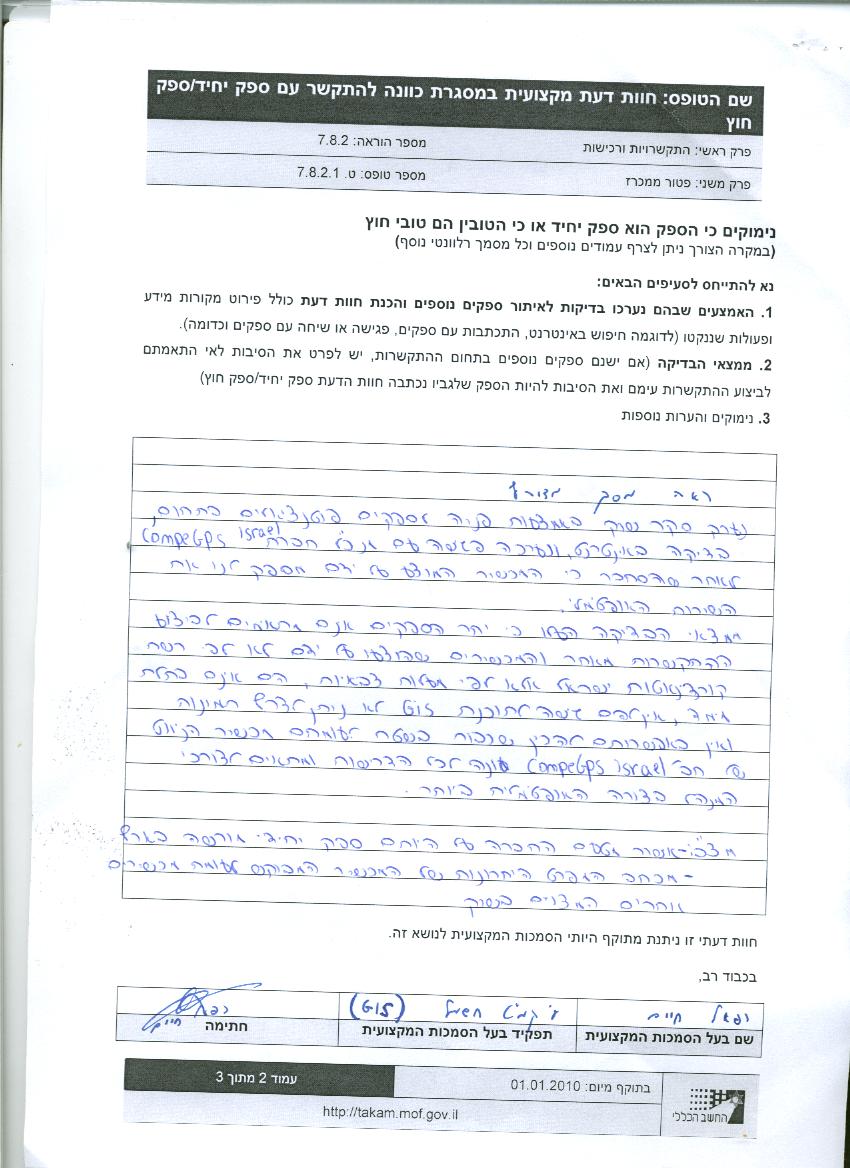 שם הטופס: חוות דעת מקצועית במסגרת כוונה להתקשר עם ספק יחיד/ספק
חוץ
פרק ראשי: התקשרויות ורכישות מספר הוראה: 7.8.2
פרק משני: פטור ממכרז מספר טופס: ט. 7.8.2.1
נימוקים כי הספק הוא ספק יחיד או כי הטובין הם טובי חוץ
(במקרה הצורך ניתן לצרף עמודים נוספים וכל מסמך רלוונטי נוסף)
נא להתייחס לסעיפים הבאים:
1. האמצעים שבהם נערכו בדיקות לאיתור ספקים נוספים והכנת חוות דעת כולל פירוט מקורות מידע
ופעולות שננקטו (לדוגמה חיפוש באינטרנט, התכתבות עם ספקים, פגישה או שיחה עם ספקים וכדומה).
2. ממצאי הבדיקה (אם ישנם ספקים נוספים בתחום ההתקשרות, יש לפרט את הסיבות לאי התאמתם
לביצוע ההתקשרות עימם ואת הסיבות להיות הספק שלגביו נכתבה חוות הדעת ספק יחיד/ספק חוץ)
3. נימוקים והערות נוספות
ראה מסמך מצורף
נערך סקר שוק באמצעות פניה לספקים פוטנציאלים בתחום,
בדיקה באינטרנט, ונערכה פגישה עם מנכ"ל חברת CompeGps israel
לאחר שהסתבר כי המכשיר המוצע על ידם מספק לנו את
השירות האופטמלי.
ממצאי הבדיקה העלו כי יתר הספקים אינם מתאימים לביצוע
ההתקשרות מאחר והמכשירים שהוצעו על ידם לא לפי רשת
קורדינאטות ישראל אלא לפי מעלות צבאיות, הם אינם בתלת
מימד, אין להם גישה לתוכנת GIS לא ניתן לצרף תמונות
ואין באפשרותם להכין שכבות בשטח לעומתם מכשיר הניווט
של חב' CompeGps israel עונה לכל הדרישות ומתאים לצורכי
המנהל בצורה האופטמלית ביותר.
מצ"ב:-אישור מטעם החברה על היותם ספק יחיד מורשה בארץ
-מכתב המפרט היתרונות של המכשיר המבוקש לעומת מכשירים
אחרים המצוים בשוק
חוות דעתי זו ניתנת מתוקף היותי הסמכות המקצועית לנושא זה.
בכבוד רב,
רפאל חיים (GIS) רפאל חיים
שם בעל הסמכות המקצועית תפקיד בעל הסמכות המקצועית חתימה
החשב הכללי
בתוקף מיום: 01.01.2010 עמוד 2 מתוך 3
http://takam.mof.gov.il